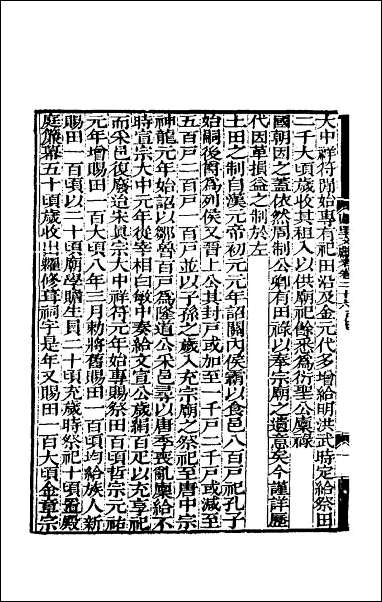 大中祥符間始專有祀田㳂及金元代多增給明洪武時定給祭田
二千大頃歲收其租入以供廟祀餘悉為衍聖公廩祿
國朝因之蓋依然周制公卿有田祿以奉宗廟之遺意矣今謹詳歷
代因革損益之制於左
土田之制自漢元帝初元元年詔關內侯霸以食邑八百戶祀孔子
始嗣後爵為列侯又晉上公其封戶或加至一千戶二千戶或減至
五百戶二百戶一百戶並以子孫之歲入充宗廟之祭祀至唐中宗
神龍元年始詔以鄒魯百戶為隆道公采邑尋以唐季喪亂廩給不
時宣宗大中元年從宰相白敏中奏給文宣公歲絹百疋以充享祀
而采邑復廢迨宋眞宗大中祥符元年始專賜祭田百頃哲宗元祐
元年增賜田一百大頃八年三月勅將舊賜田一百頃均給族人新
賜田一百頃以二十頃廟學贍生員二十頃充歲時祭祀十頃置殿
庭簾幕五十頃歲收出糶修葺祠宇是年又賜田一百大頃金章宗